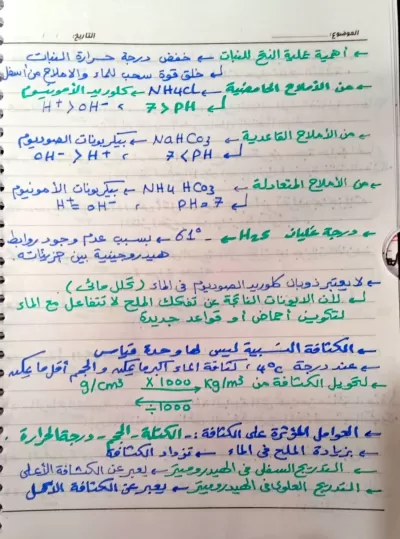 الموضوع:
التاريخ: / /
← أهمية عملية النتح للنبات ← خفض درجة حرارة النبات
↳ خلق قوة سحب للماء والأملاح من أسفل
← من الأملاح الحامضية ← NH4Cl ← كلوريد الأمونيوم
↳ 7 > PH ، H+ > OH-
← من الأملاح القاعدية ← NaHCO3 ← بيكربونات الصوديوم
↳ 7 < PH ، OH- > H+
← من الأملاح المتعادلة ← NH4HCO3 ← بيكربونات الأمونيوم
↳ PH = 7 ، H+ = OH-
← درجة غليان H2S ← -61° ← بسبب عدم وجود روابط
هيدروجينية بين جزيئاته.
← لا يعتبر ذوبان كلوريد الصوديوم في الماء (تحلل مائي)
↳ لأن الأيونات الناتجة عن تفكك الملح لا تتفاعل مع الماء
لتكوين أحماض أو قواعد جديدة
← الكثافة النسبية ليس لها وحدة قياس
← عند درجة 4°C، كثافة الماء أكبر ما يمكن والحجم أقل ما يمكن
← لتحويل الكثافة من Kg/m3 X 1000 g/cm3
÷1000
← العوامل المؤثرة على الكثافة :- الكتلة - الحجم - درجة الحرارة .
← بزيادة الملح في الماء ← تزداد الكثافة
← التدريج السفلي في الهيدروميتر ← يعبر عن الكثافة الأعلى
← التدريج العلوي في الهيدروميتر ← يعبر عن الكثافة الأقل